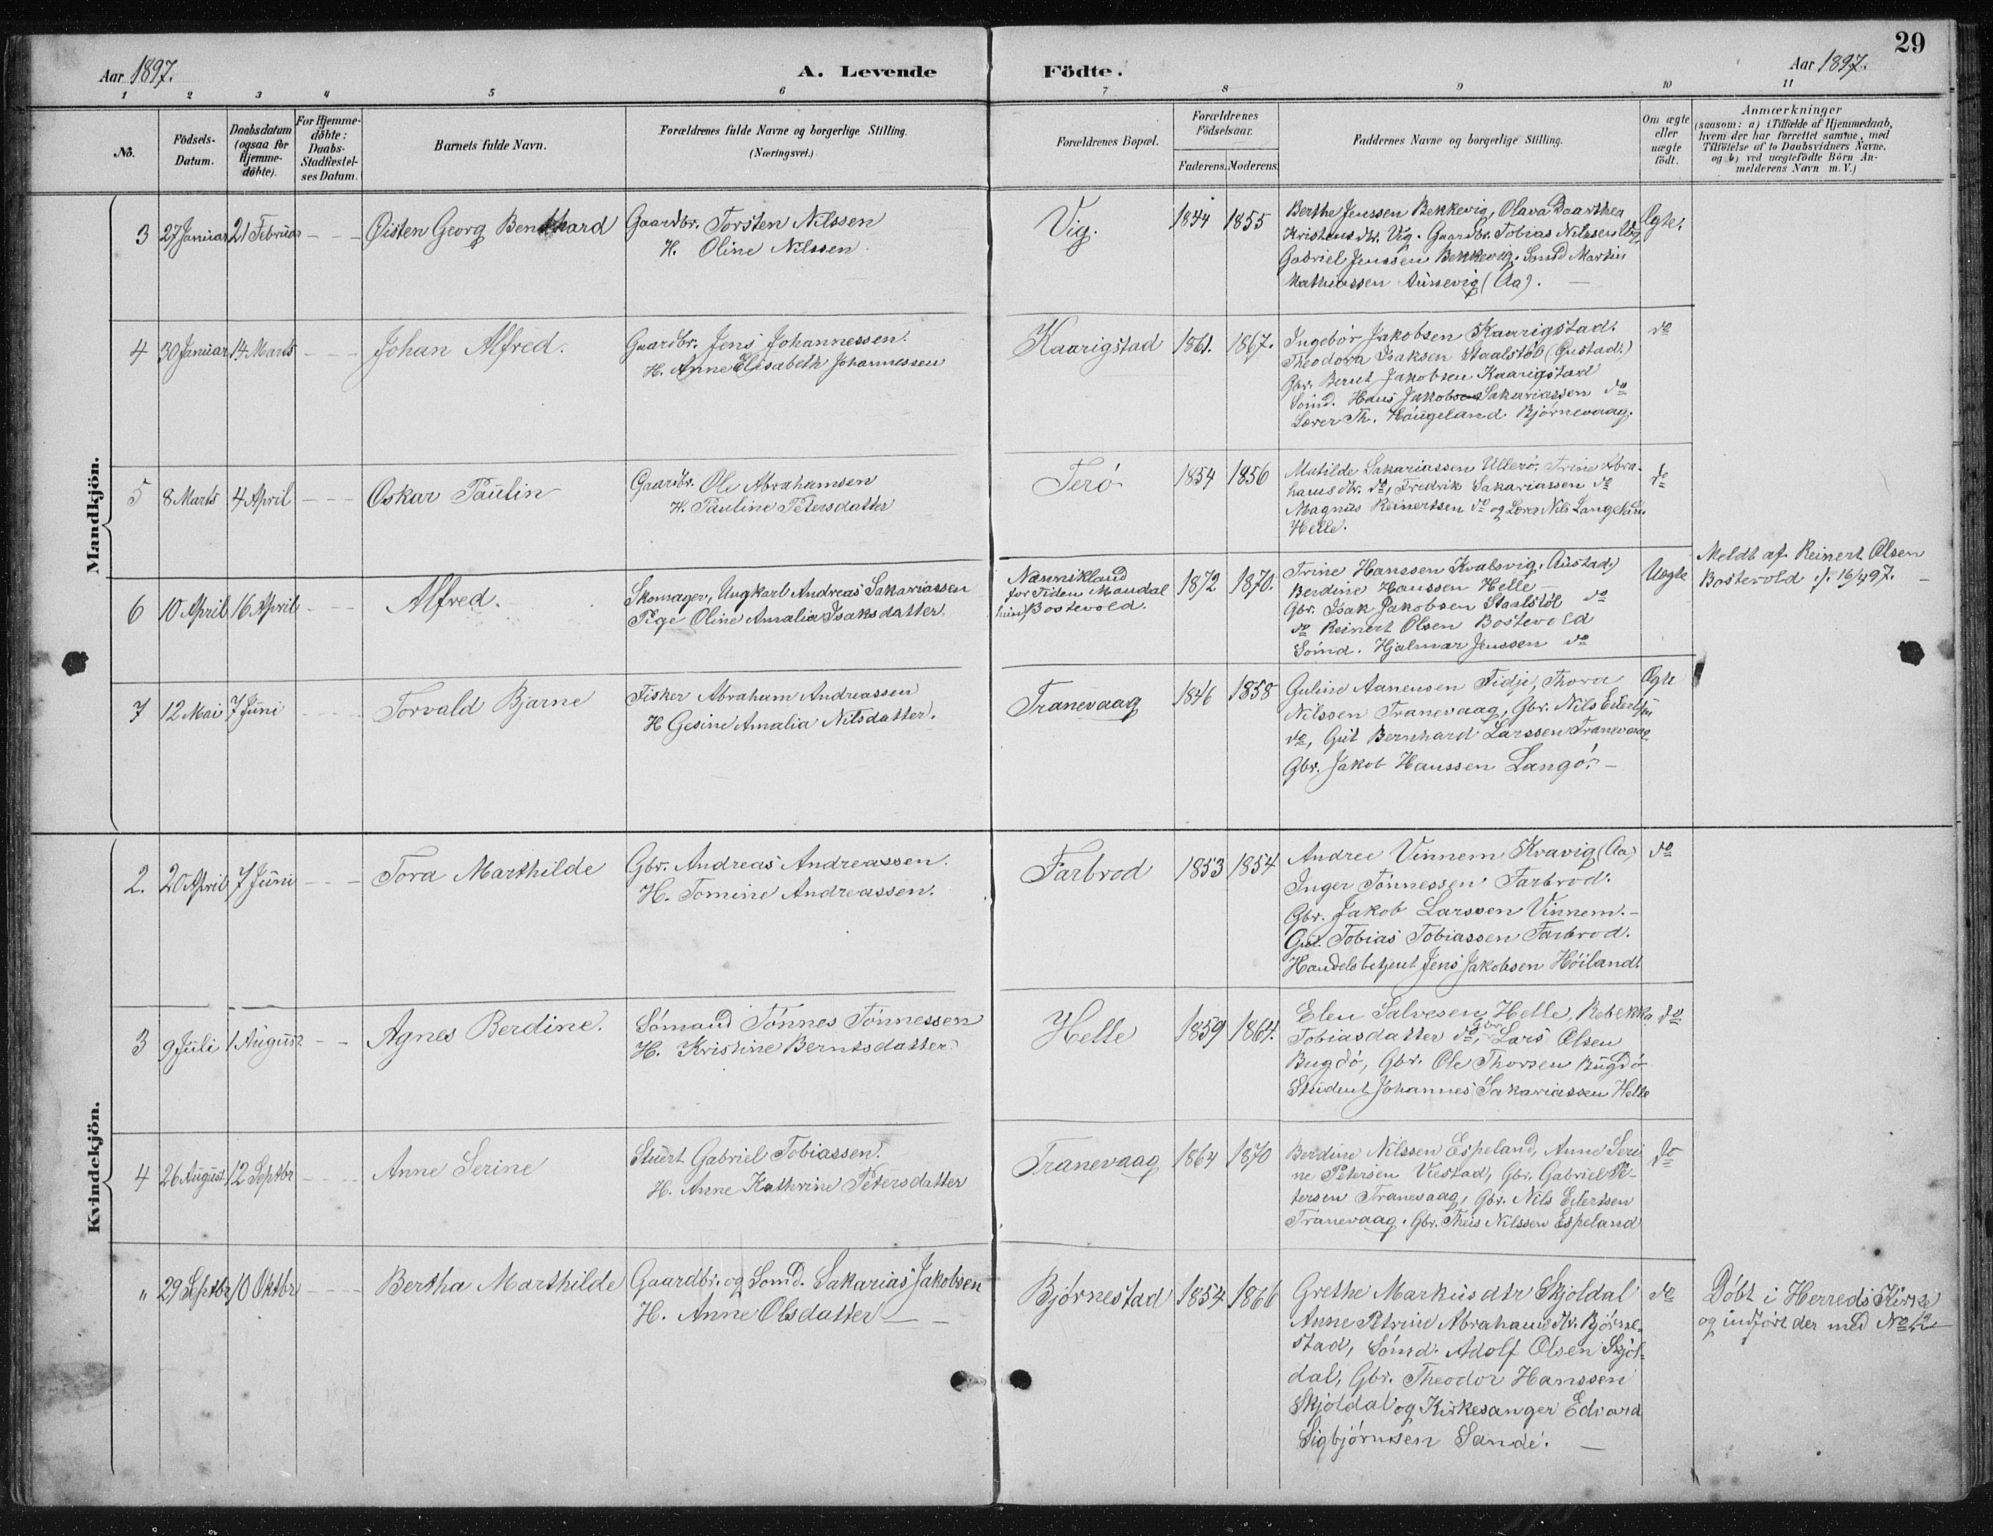 29
Aar 1897.
A. Levende Födte.
Aar 1897.
1 2 3 4 5 6 7 8 9 10 11
No.
Födsels-Datum.
Daabsdatum (ogsaa for Hjemme-döbte).
For Hjemme-döbte: Daabs-Stadfæstel-ses Datum.
Barnets fulde Navn.
Forældrenes fulde Navne og borgerlige Stilling.
(Næringsvei.)
Forældrenes Bopæl.
Forældrenes Födselsaar.
Faderens. Moderens.
Faddernes Navne og borgerlige Stilling.
Om ægte eller uægte födt.
Anmærkninger
(saasom: a) i Tilfælde af Hjemmedaab,
hvem der har forrettet samme, med
Tilföielse af to Daabsvidners Navne,
og b) ved uægtefödte Börn An-
melderens Navn m. V.)
Mandkjön.
3 27 Januar 21 Februar Øisten Georg Bernhard
Gaardbr. Torsten Nilssen
H. Oline Nilssen.
Vig. 1844 1855
Berthe Jenssen Bekkevig, Olava Baarthea
Kristensdtr. Vig. Gaardbr. Tobias Nilssen Vig,
Gabriel Jenssen Bekkevig. Sømd Martin
Mathiassen Aunevig (Aa). —
Ægte.
4 30 Januar 14 Marts Johan Alfred.
Gaardbr. Jens Johannessen.
H. Anne Elisabeth Johannessen
Kaarigstad 1861. 1867.
Ingebor Jakobsen Kaarigstad.
Theodora Isaksen Staalstøl (Gustad.)
Gbr. Bernt Jakobsen Kaarigstad
Sømd. Hans Jakobsen Sakariassen do
Lærer Th. Haugeland Bjørnevaag.
do
5 8 Marts 4 April Oskar Paulin
Gaardbr. Ole Abrahamsen
H. Pauline Petersdatter
Terø 1854 1856
Matilde Sakariassen Ullerø, Trine Abra-
hamsdtr. do, Fredrik Sakariassen do
Magnus Reinertsen do og Lærer Nils Langeland
Helle.
do
6 10 April 16 April Alfred.
Skomager, Ungkarl Andreas Sakariassen
Pige Oline Amalia Isaksdatter
for Tiden Mandal
hun Bostevold.
1872 1870.
Trine Hanssen Kvalsvig, (Austad.)
Berdine Hanssen Helle
Gbr. Isak Jakobsen Staalstøl do
do Reinert Olsen Bostevold
Sømd. Hjalmar Jenssen do
Uægte
Meldt af Reinert Olsen
Bostevold d. 16/4 97. —
7 12 Mai 7 Juni Torvald Bjarne
Fisker Abraham Andreassen
H Gesine Amalia Nilsdatter.
Tranevaag 1846 1858
Guline Aanensen Fidje, Thora
Nilssen Tranevaag, Gbr. Nils Eilertsen
do, Gut Bernhard Larssen Tranevaag
Gbr. Jakob Hanssen Langø. —
Ægte
Kvindekjön.
2. 20 April 7 Juni Tora Marthilde
Gbr. Andreas Andreassen.
H. Tomine Andreassen.
Farbrod 1853 1854
Andree Vinnem Kvavig (Aa)
Inger Tønnessen Farbrod.
Gbr. Jakob Larssen Vinnem. —
Gut. Tobias Tobiassen Farbrod.
Handelsbetjent Jens Jakobsen Høiland.
do
3 9 Juli 1 August Agnes Berdine.
Sømand Tønnes Tønnessen
H. Kristine Berntsdatter
Helle 1859 1864.
Elen Salvesen Helle, Rebekka
Tobiasdatter do, Gbr. Lars Olsen
Bugdø, Gbr. Ole Thorsen Bugdø
Student Johannes Sakariassen Helle
do
4 26 August 12 Septbr Anne Serine
Stuert Gabriel Tobiassen.
H. Anne Kathrine Petersdatter
Tranevaag 1864 1870
Berdine Nilssen Espeland, Anne Seri
ne Petersen Viestad, Gbr. Gabriel Pe-
tersen Tranevaag, Gbr. Nils Eilertsen
Tranevaag. Gbr. Theis Nilssen Espeland
do
" 29 Septbr 10 Oktbr Bertha Marthilde
Gaardbr. og Sømd. Sakarias Jakobsen
H. Anne Olsdatter —
Bjørnestad 1854 1866
Grethe Markusdtr Skjoldal
Anne Petrine Abrahamsdtr. Bjørne-
stad, Sømd. Adolf Olsen Skjol-
dal, Gbr. Theodor Hanssen
Skjoldal og Kirkesanger Edvard
Sigbjørnsen Sande. —
do
Døbt i Herreds Kirke
og indført der med No 12